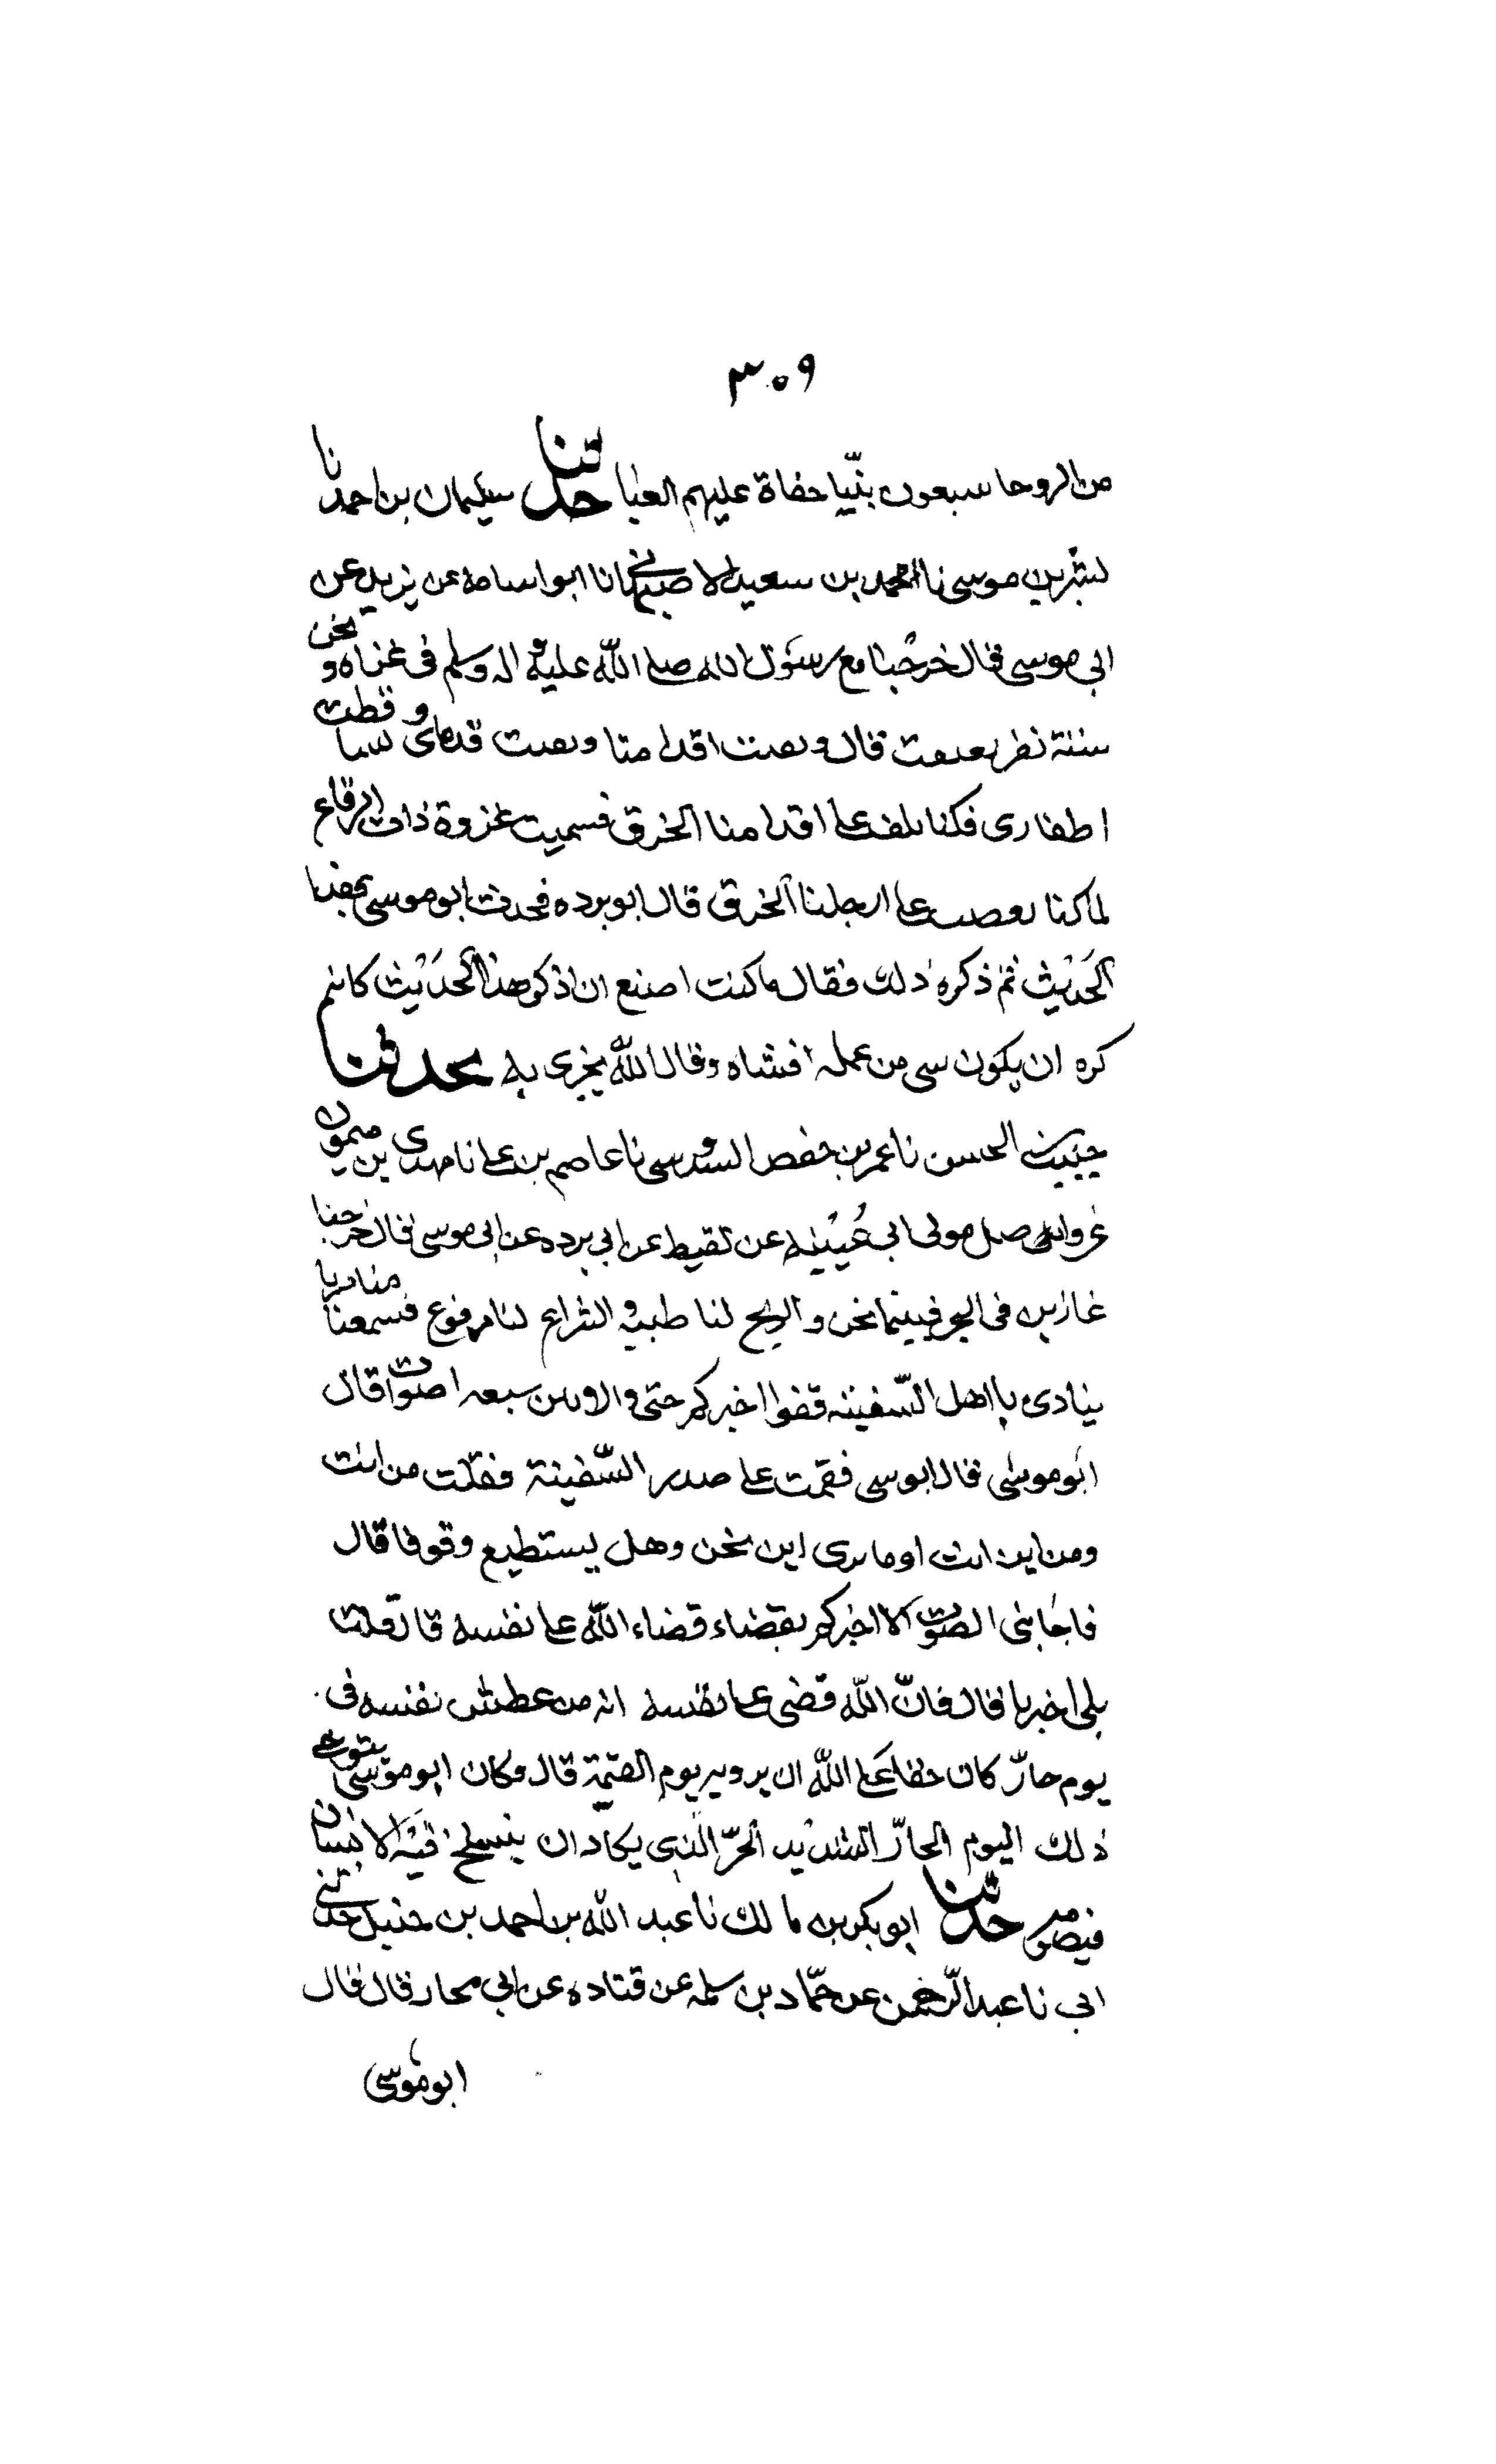 ٣٠٩
من الروحا سبعون بنيّا حفاة عليهم العبا حدثنا سليمان بن احمد نا
بشر بن موسى نا محمد بن سعيد الاصبهانى نا ابو اسامه عن بزيد عن
ابى موسى قال خرجنا مع رسول الله صلى الله عليه و اله وسلم فى غزاه و نحن
ستة نفر بعير نعتقبه قال ونقبت اقدامنا ونقبت قدماى و سقطت
اظفارى فكنا نلف على اقدامنا الخرق فسميت غزوة ذات الرقاع
لما كنا نعصب على ارجلنا الخرق قال ابو برده فحدث ابو موسى بهذا
الحديث ثم ذكره ذلك فقال ما كنت اصنع ان اذكر هذا الحديث كانه
كره ان يكون سى من عمله افشاه وقال الله يجزى به حدثنا
حبيب بن الحسن نا عمر بن حفص السدوسى نا عاصم بن على نا مهدى بن ميمون
عن واصل مولى ابى عيينه عن لقيط عن ابى برده عن ابى موسى قال خرجنا
غازين فى البحر فبينما نحن و الريح لنا طيبه و الشراع لنا مرفوع فسمعنا مناديا
ينادى يا اهل السّفينه قفوا اخبركم حتى والا بين سبعه اصوات قال
ابو موسى قال ابو سى فقمت على صدر السّفينة فقلت من انت
ومن اين انت او ما ترى اين نحن وهل يستطيع وقوفا قال
فاجابنى الصوت الا اخبركم بقضاء قضاء الله على نفسه قال قلت
بلى اخبرنا قال فانّ الله قضى على نفسه انه من عطش نفسه فى
يوم حارّ كان حقا على الله ان يرويه يوم القيمة قال وكان ابو موسى يتوخى
ذلك اليوم الحارّ الشديد الحرّ الذى يكاد ان ينسلخ فيه الانسان
فيصومه حدثنا ابو بكر بن مالك نا عبد الله بن احمد بن حنبل حدثنى
ابى نا عبد الرّحمن عن حمّاد بن سلمه عن قتاده عن ابى مجلز قال قال
ابو موسى